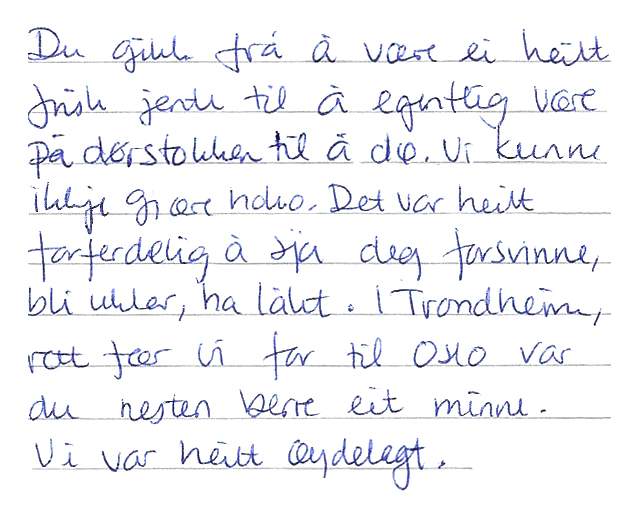 Du gikk frå å være ei heilt
frisk jente til å egentlig være
på dørstokken til å dø. Vi kunne
ikkje gjøre noko. Det var heilt
forferdelig å sjå deg forsvinne,
bli uklar, ha låkt. I Trondheim,
rett før vi for til Oslo var
du nesten berre eit minne.
Vi var heilt øydelagt.